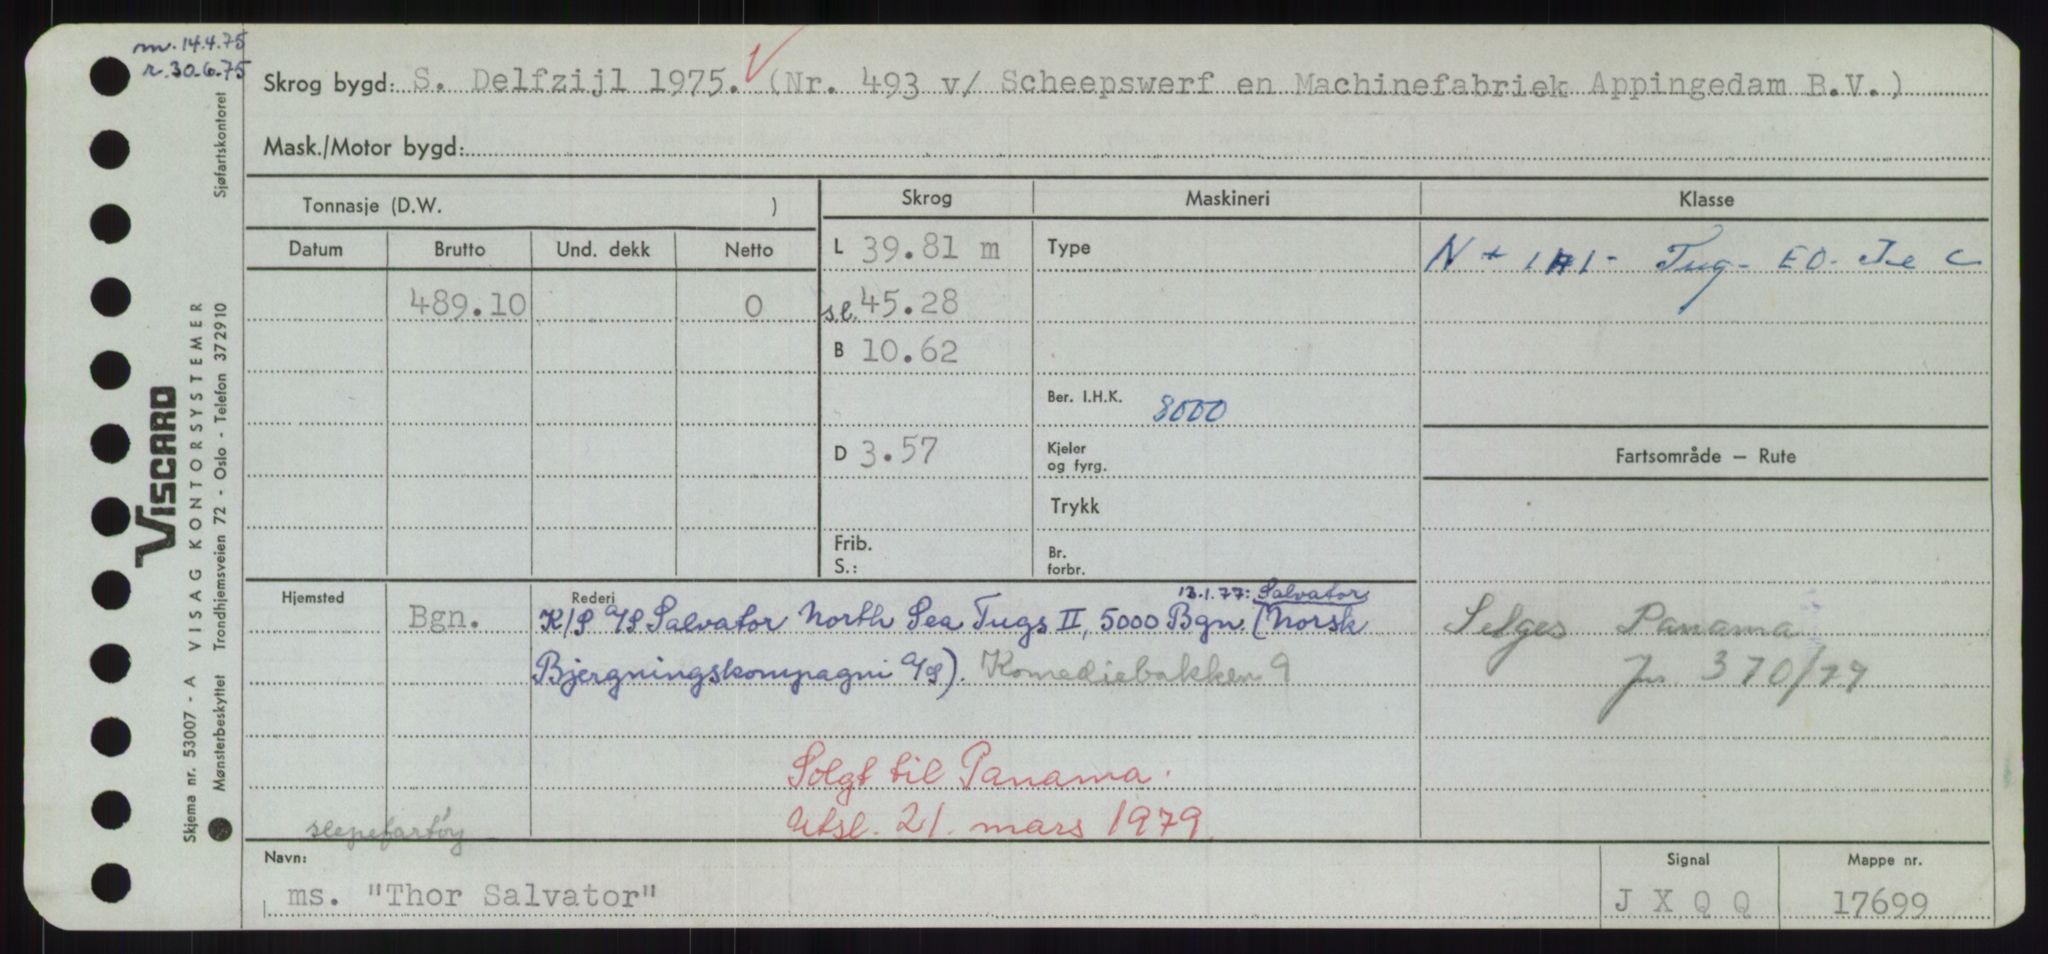 m. 14.4.75
r. 30.6.75
Skrog bygd: S. Delfzijl 1975. V (Nr. 493 v/ Scheepswerf en Machinefabriek Appingedam B.V.)
Mask./Motor bygd:
Tonnasje (D.W. )
Skrog
Maskineri
Klasse
Datum Brutto Und. dekk Netto
L 39.81 m
Type
N + 1A1 - Tug - E0 - Ice C
489.10 0
s.l. 45.28
B 10.62
Ber. I.H.K. 8000
D 3.57
Kjeler
og fyrg.
Fartsområde — Rute
Trykk
Frib.
S.:
Br.
forbr.
Hjemsted
Bgn.
Rederi
13.1.77: Salvator
K/S A/S Salvator North Sea Tugs II, 5000 Bgn. (Norsk
Bjergningskompagni A/S). Komediebakken 9
Selges Panama
Jnr 370/77
Solgt til Panama.
Utsl. 21. mars 1979.
slepefartøy
Navn:
ms. "Thor Salvator"
Signal
J X Q Q
Mappe nr.
17699
Skjema nr. 53007 - A VISAG KONTORSYSTEMER
Mønsterbeskyttet Trondhjemsveien 72 - Oslo - Telefon 372910 Sjøfartskontoret
VISCARD